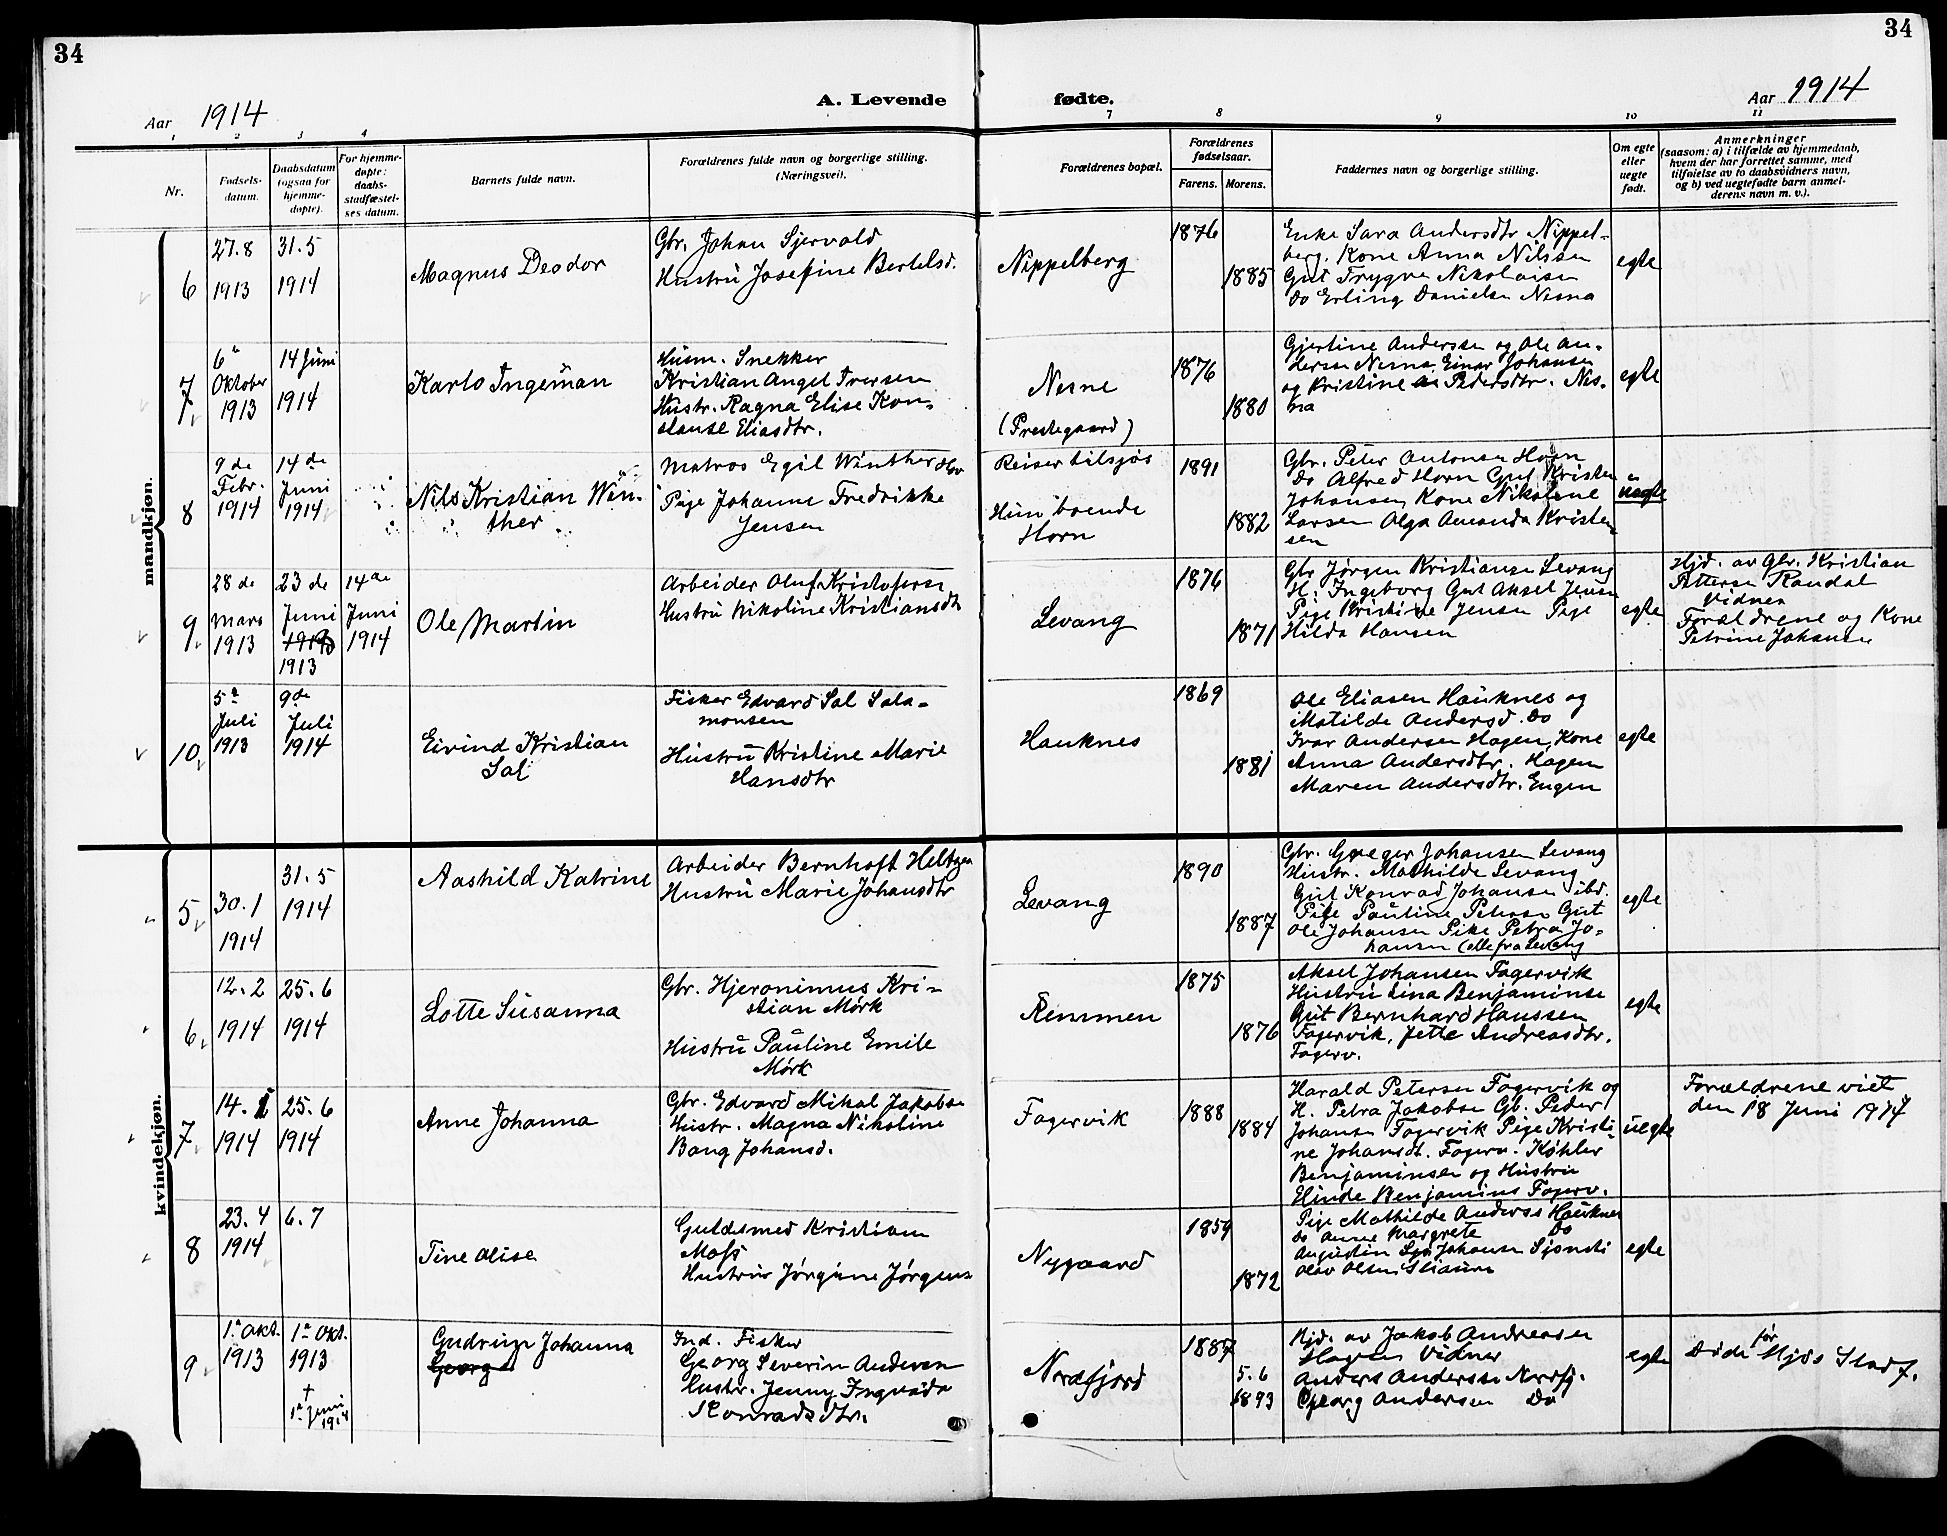 34
34
Aar 1914
A. Levende fødte.
Aar 1914
1 2 3 4 7 8 9 10 11
Nr.
Fødsels-
datum.
Daabsdatum
(ogsaa for
hjemme-
døpte).
For hjemme-
døpte:
daabs-
stadfæstel-
ses datum.
Barnets fulde navn.
Forældrenes fulde navn og borgerlige stilling.
(Næringsvei).
Forældrenes bopæl.
Forældrenes
fødselsaar.
Farens. Morens.
Faddernes navn og borgerlige stilling.
Om egte
eller
uegte
født.
Anmerkninger
(saasom: a) i tilfælde av hjemmedaab,
hvem der har forrettet samme, med
tilføielse av to daabsvidners navn,
og b) ved uegtefødte barn anmel-
derens navn m. v.).
mandkjøn.
6
27.8
1913
31.5
1914
Magnus Deodor
Gbr. Johan Sjervold
Hustru Josefine Bertelsd.
Nippelberg
1876
1885
Enke Sara Andersdtr Nippel-
berg. Kone Anna Nilsen
Gut Trygve Nikolaisen
Do Erling Danielsen Nesna
egte
7
6
Oktober
1913
14 Juni
1914
Karlo Ingeman
Husm. Snekker
Kristian Angel Iversen
Hustr. Ragna Elise Kon-
stanse Eliasdtr.
Nesne
(Prestegaard)
1876
1880
Gjertine Anderssen og Ole An-
dersen Nesna, Einar Johansen
og Kristine Pedersdtr. Nes-
na
egte
8
9 de
Febr.
1914
14 de
Juni
1914
Nils Kristian Win-
ther
Matros Egil Winther
Pige Johanne Fredrikke
Jensen
Reiser tilsjøs
Hun boende
Horn
1891
1882
Gbr. Peter Antonsen Horn
Do Alfred Horn Gut Kristen
Johansen Kone Nikoline
Larsen Olga Amanda Kristen-
sen
uegte
9
28 de
Mars
1913
23 de
Juni
1913
14 de
Juni
1914
Ole Martin
Arbeider Oluf Kristofersen
Hustru Nikoline Kristiansdtr
Levang
1876
1871
Gbr Jørgen Kristiansen Levang
H. Ingeborg Gut Aksel Jensen
Pige Kristine Jensen Pige
Hilda Hansen
egte
Hjd. av Gbr. Kristian
Pettersen Randal
Vidner
Forældrene og Kone
Petrine Johansen
10
5
Juli
1913
9 de
Juli
1914
Eivind Kristian
Sal
Fisker Edvard Sal Sala-
monsen
Hustru Kristine Marie
Hansdtr
Hauknes
1869
1881
Ole Eliasen Hauknes og
Matilde Andersd. Do
Ivar Andersen Hagen, Kone
Anna Andersdtr. Hagen
Maren Andersdtr. Engen
egte
kvindekjøn.
5
30.1
1914
31.5
1914
Aashild Katrine
Arbeider Bernhoft Heltzen
Hustru Marie Johansdtr
Levang
1890
1887
Gbr. Greger Johansen Levang
Hustr. Mathilde Levang
Gut Konrad Johansen ibd.
Pige Pauline Petersen Gut
Ole Johansen Pike Petra Jo-
hansen (alle fra Levang
egte
6
12.2
1914
25.6
1914
Lotte Susanna
Gbr. Hjeronimus Kri-
stian Mørk
Hustru Pauline Emile
Mørk
Remmen
1875
1876
Aksel Johansen Fagervik
Hustru Lina Benjaminsen
Gut Bernhard Hanssen
Fagervik, Jette Andreasdtr.
Fagerv.
egte
7
14.
1914
25.6
1914
Anne Johanna
Gbr. Edvard Mikal Jakobsen
Hustr. Magna Nikoline
Bang Johansd.
Fagervik
1888
1884
Harald Petersen Fagervik og
H. Petra Jakobsen Gb. Peder
Johansen Fagervik Pige Kristi-
ne Johansdt. Fagerv. Køhler
Benjaminsen og Hustru
Elinde Benjamins Fagerv.
uegte
Forældrene viet
den 18 Juni 1914
8
23.4
1914
6.7
Tine Alise
Guldsmed Kristian
Moss
Hustru Jørgine Jørgens
Nygaard
1859
1872
Pige Mathilde Anderss Hauknes
Do Anne Margrete Do
Augustin Johansen Sjonsti
Olav Olsen
egte
9
1 Okt.
1913
1 Okt.
1913
† 1 Juni
1914
Gudrun Johanna
Georg
Ind. Fisker
Georg Severin Andersen
Hustr. Jenny Ingvalda
Konradsdtr.
Nordfjord
1887
5.6
1893
Hjd. av Jakob Andreasen
Hagen Vidner
Anders Andersen Nordfj.
Georg Andersen Do
egte
Døde før Hjds Stadf.